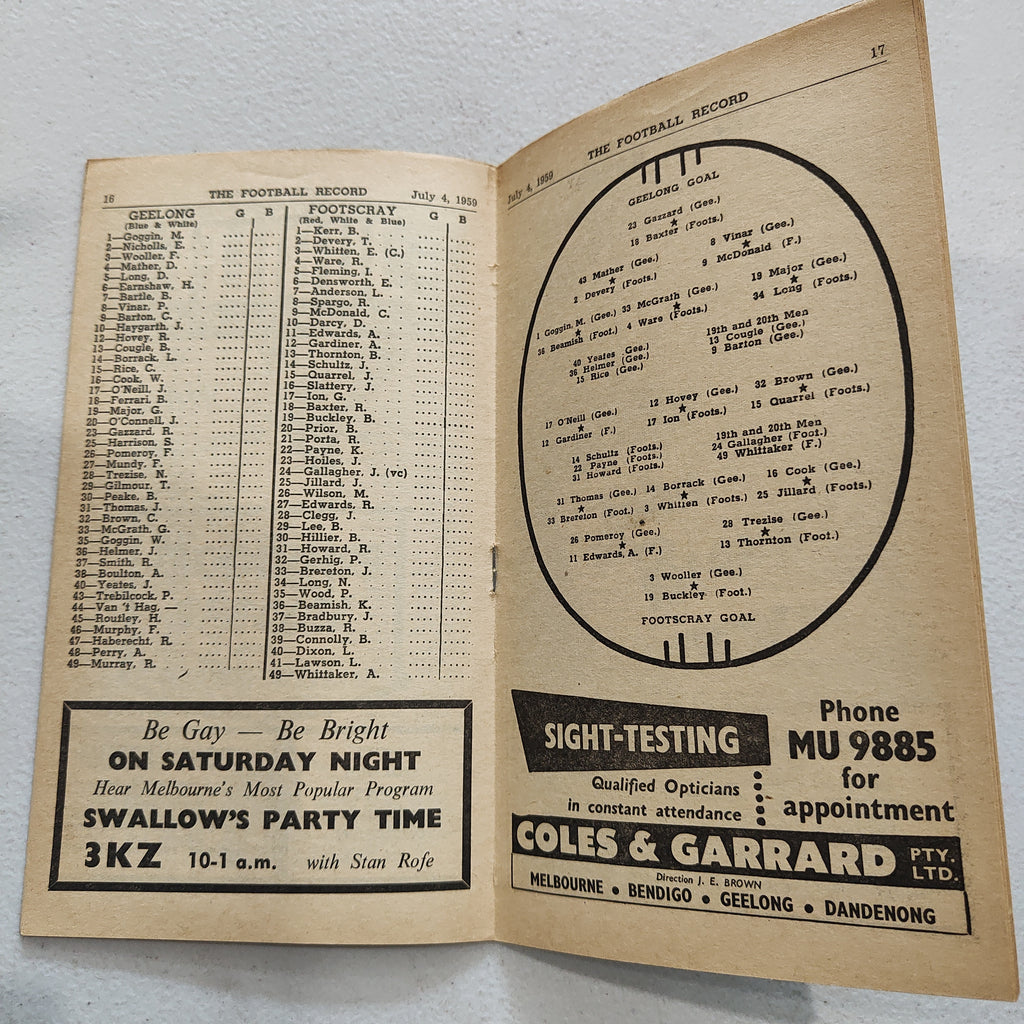 16 THE FOOTBALL RECORD July 4, 1959
GEELONG G B
(Blue & White)
1—Goggin, M.
2—Nicholls, E.
3—Wooller, F.
4—Mather, D.
5—Long, D.
6—Earnshaw, H.
7—Bartle, B.
8—Vinar, P.
9—Barton, C.
10—Haygarth, J.
12—Hovey, R.
13—Cougle, B.
14—Borrack, L.
15—Rice, C.
16—Cook, W.
17—O'Neill, J.
18—Ferrari, B.
19—Major, G.
20—O'Connell, J.
23—Gazzard, R.
25—Harrison, S.
26—Pomeroy, F.
27—Mundy, F.
28—Trezise, N.
29—Gilmour, T.
30—Peake, B.
31—Thomas, J.
32—Brown, C.
33—McGrath, G.
35—Goggin, W.
36—Helmer, J.
37—Smith, R.
38—Boulton, A.
40—Yeates, J.
43—Trebilcock, P.
44—Van 't Hag, —
45—Routley, H.
46—Murphy, F.
47—Haberecht, R.
48—Perry, A.
49—Murray, R.
FOOTSCRAY G B
(Red, White & Blue)
1—Kerr, B.
2—Devery, T.
3—Whitten, E. (C.)
4—Ware, R.
5—Fleming, I.
6—Densworth, E.
7—Anderson, L.
8—Spargo, R.
9—McDonald, C.
10—Darcy, D.
11—Edwards, A.
12—Gardiner, A.
13—Thornton, B.
14—Schultz, J.
15—Quarrel, J.
16—Slattery, J.
17—Ion, G.
18—Baxter, R.
19—Buckley, B.
20—Prior, B.
21—Porta, R.
22—Payne, K.
23—Hoiles, J.
24—Gallagher, J. (vc)
25—Jillard, J.
26—Wilson, M.
27—Edwards, R.
28—Clegg, J.
29—Lee, B.
30—Hillier, B.
31—Howard, R.
32—Gerhig, P.
33—Brereton, J.
34—Long, N.
35—Wood, P.
36—Beamish, K.
37—Bradbury, J.
38—Buzza, R.
39—Connolly, B.
40—Dixon, L.
41—Lawson, L.
49—Whittaker, A.
Be Gay — Be Bright
ON SATURDAY NIGHT
Hear Melbourne's Most Popular Program
SWALLOW'S PARTY TIME
3KZ 10-1 a.m. with Stan Rofe
July 4, 1959 THE FOOTBALL RECORD 17
GEELONG GOAL
23 Gazzard (Gee.)
18 Baxter (Foots.)
8 Vinar (Gee.)
9 McDonald (F.)
43 Mather (Gee.)
2 Devery (Foots.)
19 Major (Gee.)
34 Long (Foots.)
1 Goggin, M. (Gee.) 33 McGrath (Gee.)
36 Beamish (Foot.) 4 Ware (Foots.)
19th and 20th Men
13 Cougle (Gee.)
9 Barton (Gee.)
40 Yeates (Gee.)
36 Helmer (Gee.)
15 Rice (Gee.)
17 O'Neill (Gee.) 12 Hovey (Gee.) 32 Brown (Gee.)
12 Gardiner (F.) 17 Ion (Foots.) 15 Quarrel (Foots.)
14 Schultz (Foots.)
22 Payne (Foots.)
31 Howard (Foots.)
19th and 20th Men
24 Gallagher (Foot.)
49 Whittaker (F.)
31 Thomas (Gee.) 14 Borrack (Gee.) 16 Cook (Gee.)
33 Brereton (Foot.) 3 Whitten (Foots.) 25 Jillard (Foots.)
26 Pomeroy (Gee.)
11 Edwards, A. (F.)
28 Trezise (Gee.)
13 Thornton (Foot.)
3 Wooller (Gee.)
19 Buckley (Foot.)
FOOTSCRAY GOAL
SIGHT-TESTING
Qualified Opticians
in constant attendance
Phone
MU 9885
for
appointment
COLES & GARRARD PTY. LTD.
Direction J. E. BROWN
MELBOURNE • BENDIGO • GEELONG • DANDENONG